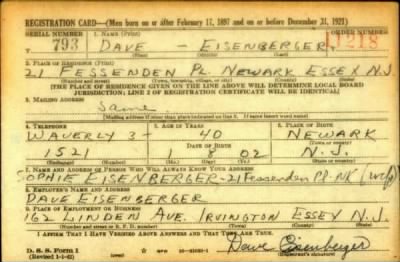 REGISTRATION CARD—(Men born on or after February 17, 1897 and on or before December 31, 1921)
SERIAL NUMBER 1. NAME (Print) ORDER NUMBER
793 DAVE — EISENBERGER 11218
(First) (Middle) (Last)
2. PLACE OF RESIDENCE (Print)
21 FESSENDEN PL. NEWARK ESSEX N.J.
(Number and street) (Town, township, village, or city) (County) (State)
[THE PLACE OF RESIDENCE GIVEN ON THE LINE ABOVE WILL DETERMINE LOCAL BOARD
JURISDICTION; LINE 2 OF REGISTRATION CERTIFICATE WILL BE IDENTICAL]
3. MAILING ADDRESS
Same
[Mailing address if other than place indicated on line 2. If same insert word same]
4. TELEPHONE 5. AGE IN YEARS 6. PLACE OF BIRTH
WAVERLY 3- 40 NEWARK
DATE OF BIRTH (Town or county)
1521 1 8 02 N.J.
(Mo.) (Day) (Yr.) (State or country)
7. NAME AND ADDRESS OF PERSON WHO WILL ALWAYS KNOW YOUR ADDRESS
SOPHIE EISENBERGER-21 Fessenden Pl-NK (wife)
8. EMPLOYER'S NAME AND ADDRESS
DAVE EISENBERGER
9. PLACE OF EMPLOYMENT OR BUSINESS
162 LINDEN AVE. IRVINGTON ESSEX N.J.
(Number and street or R. F. D. number) (Town) (County) (State)
I AFFIRM THAT I HAVE VERIFIED ABOVE ANSWERS AND THAT THEY ARE TRUE.
D. S. S. Form 1
(Revised 1-1-42) (over)
Dave Eisenberger
(Registrant's signature)